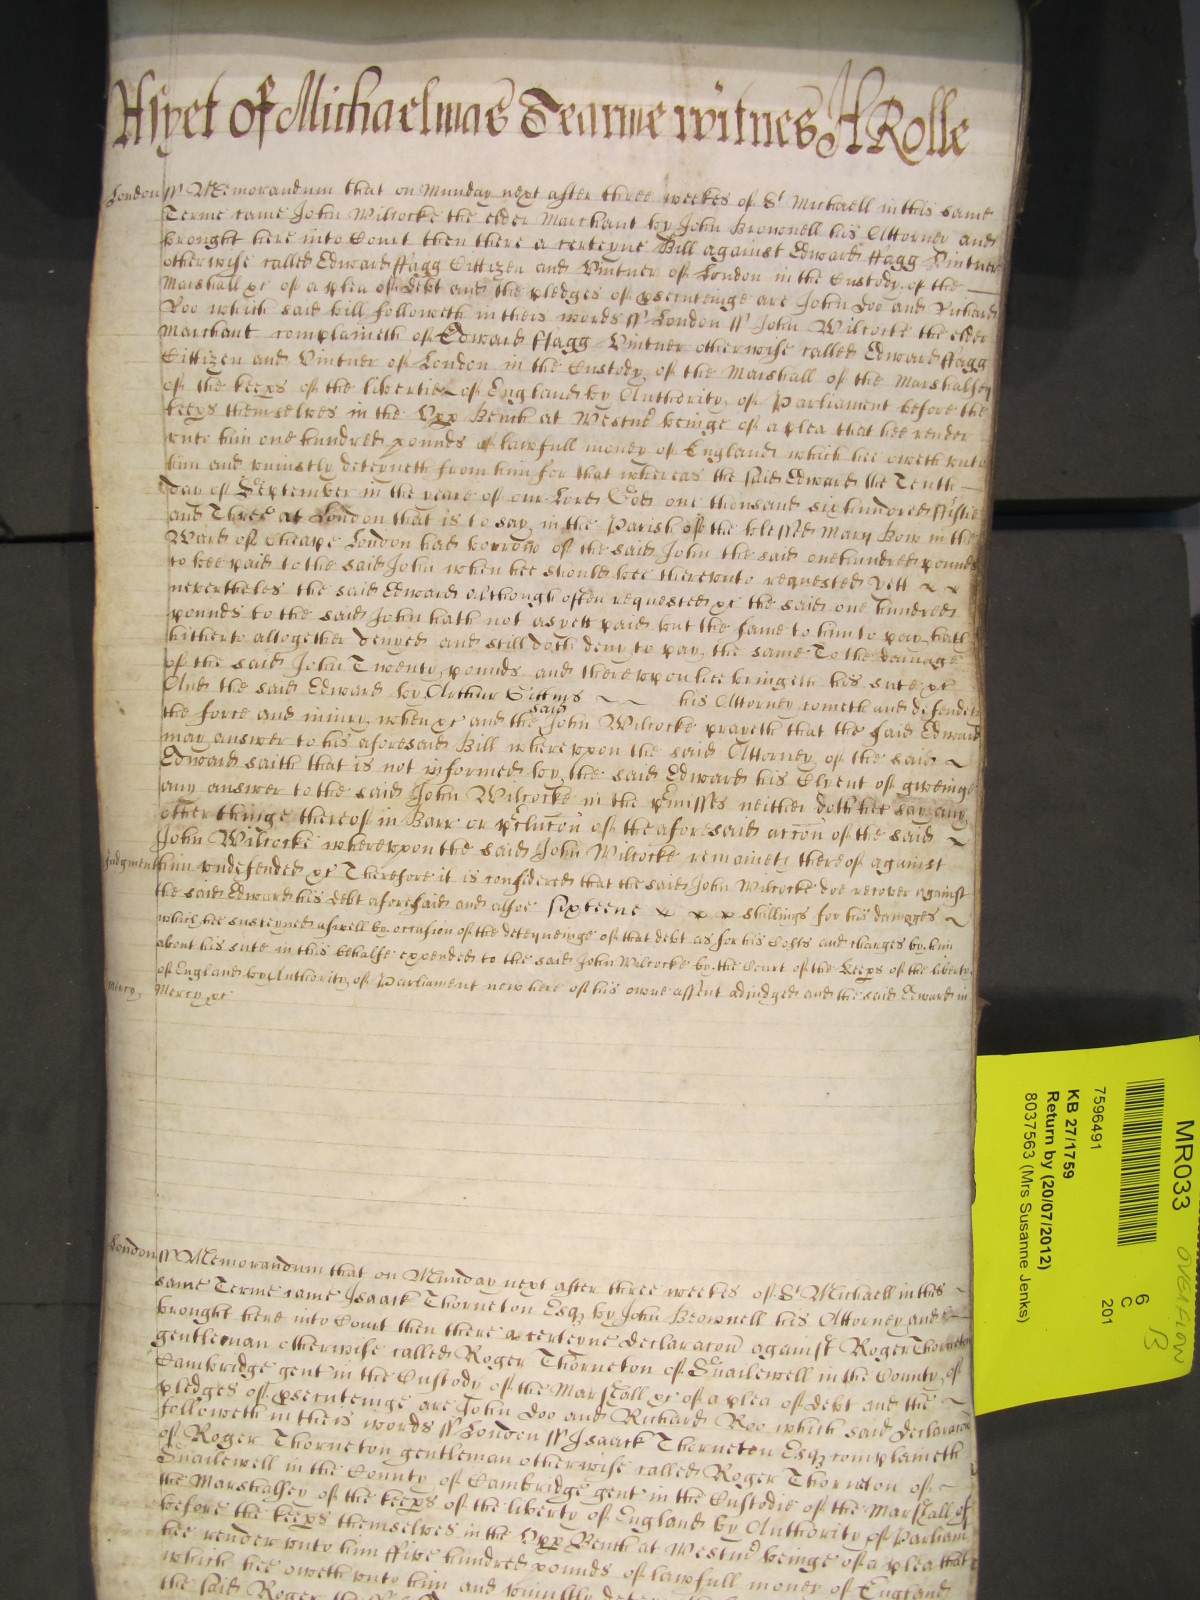 As yet of Michaelmas Tearme witnes H Rolle
London ss Memorandum that on Munday next after three weekes of St Michaell in this same
Terme came John Wilcocke the elder Marchant by John Brownell his Attorney and
brought here into Court then there a certeyne Bill against Edward ffagg Vintner
otherwise called Edward ffagg Cittizen and Vintner of London in the Custody of the
Marshall xc of a plea of Debt and the pledges of psecuteinge are John Doo and Richard
Roo which said bill followeth in theis words ss London ss John Wilcocke the elder
Marchant complaineth of Edward ffagg Vintner otherwise called Edward ffagg
Cittizen and Vintner of London in the Custody of the Marshall of the Marshalsey
of the keeps of the libertie of England by Authority of Parliament before the
keeps themselves in the Upp Bench at Westm beinge of a plea that hee render
unto him one hundred pounds of lawfull money of England which hee oweth unto
him and uniustly deteyneth from him for that whereas the said Edward the Tenth
day of September in the yeare of our Lord God one thousand six hundred ffiftie
and Three at London that is to say in the Parish of the blessed Mary Bow in the
Ward of Cheape London had borrow of the said John the said one hundred pounds
to bee paid to the said John when hee should bee thereunto requested Yett
nevertheles the said Edward although often requested xc the said one hundred
pounds to the said John hath not as yett paid but the same to him to pay hath
hitherto altogether denyed and still doth deny to pay the same To the damage
of the said John Twenty pounds and thereuppon hee bringeth his sute xc
And the said Edward by Arthur Gittins his Attorney cometh and defendeth
the force and iniury when xc and the said John Wilcocke prayeth that the said Edward
may answer to his aforesaid Bill whereuppon the said Attorney of the said
Edward saith that is not informed by the said Edward his Clyent of giveinge
any answer to the said John Wilcocke in the pmisses neither doth hee say any
other thinge thereof in Barr or pclucon of the aforesaid accon of the said
John Wilcocke whereuppon the said John Wilcocke remaineth thereof against
Judgment him undefended xc Therefore it is considered that the said John Wilcocke doe recover against
the said Edward his debt aforesaid and alsoe sixteene x x x shillings for his damages
which hee susteyned aswell by occasion of the deteyneinge of that debt as for his Costs and charges by him
about his sute in this behalfe expended to the said John Wilcocke by the Court of the keeps of the liberty
of England by Authority of Parliament now here of his owne assent adiudged and the said Edward in
Mercy Mercy xc
London ss Memorandum that on Munday next after three weekes of St Michaell in this
same Terme came Isaack Thorneton Esqz by John Brownell his Attorney and
brought here into Court then there a certeyne declaracon against Roger Thorneton
gentleman otherwise called Roger Thorneton of Snailewell in the County of
Cambridge gent in the Custody of the Marshall xc of a plea of debt and the
pledges of psecuteinge are John Doo and Richard Roo which said declaracon
followeth in theis words ss London ss Isaack Thorneton Esqz complaineth
of Roger Thorneton gentleman otherwise called Roger Thorneton of
Snailewell in the County of Cambridge gent in the Custodie of the Marshall of
the Marshalsey of the keeps of the liberty of England by Authority of Parliam
before the keeps themselves in the Upp Bench at Westm beinge of a plea that
hee render unto him ffive hundred pounds of lawfull money of England
which hee oweth unto him and uniustly
the said Roger
MR033
OVERFLOW
B
6
C
201
7596491
KB 27/1759
Return by (20/07/2012)
8037563 (Mrs Susanne Jenks)